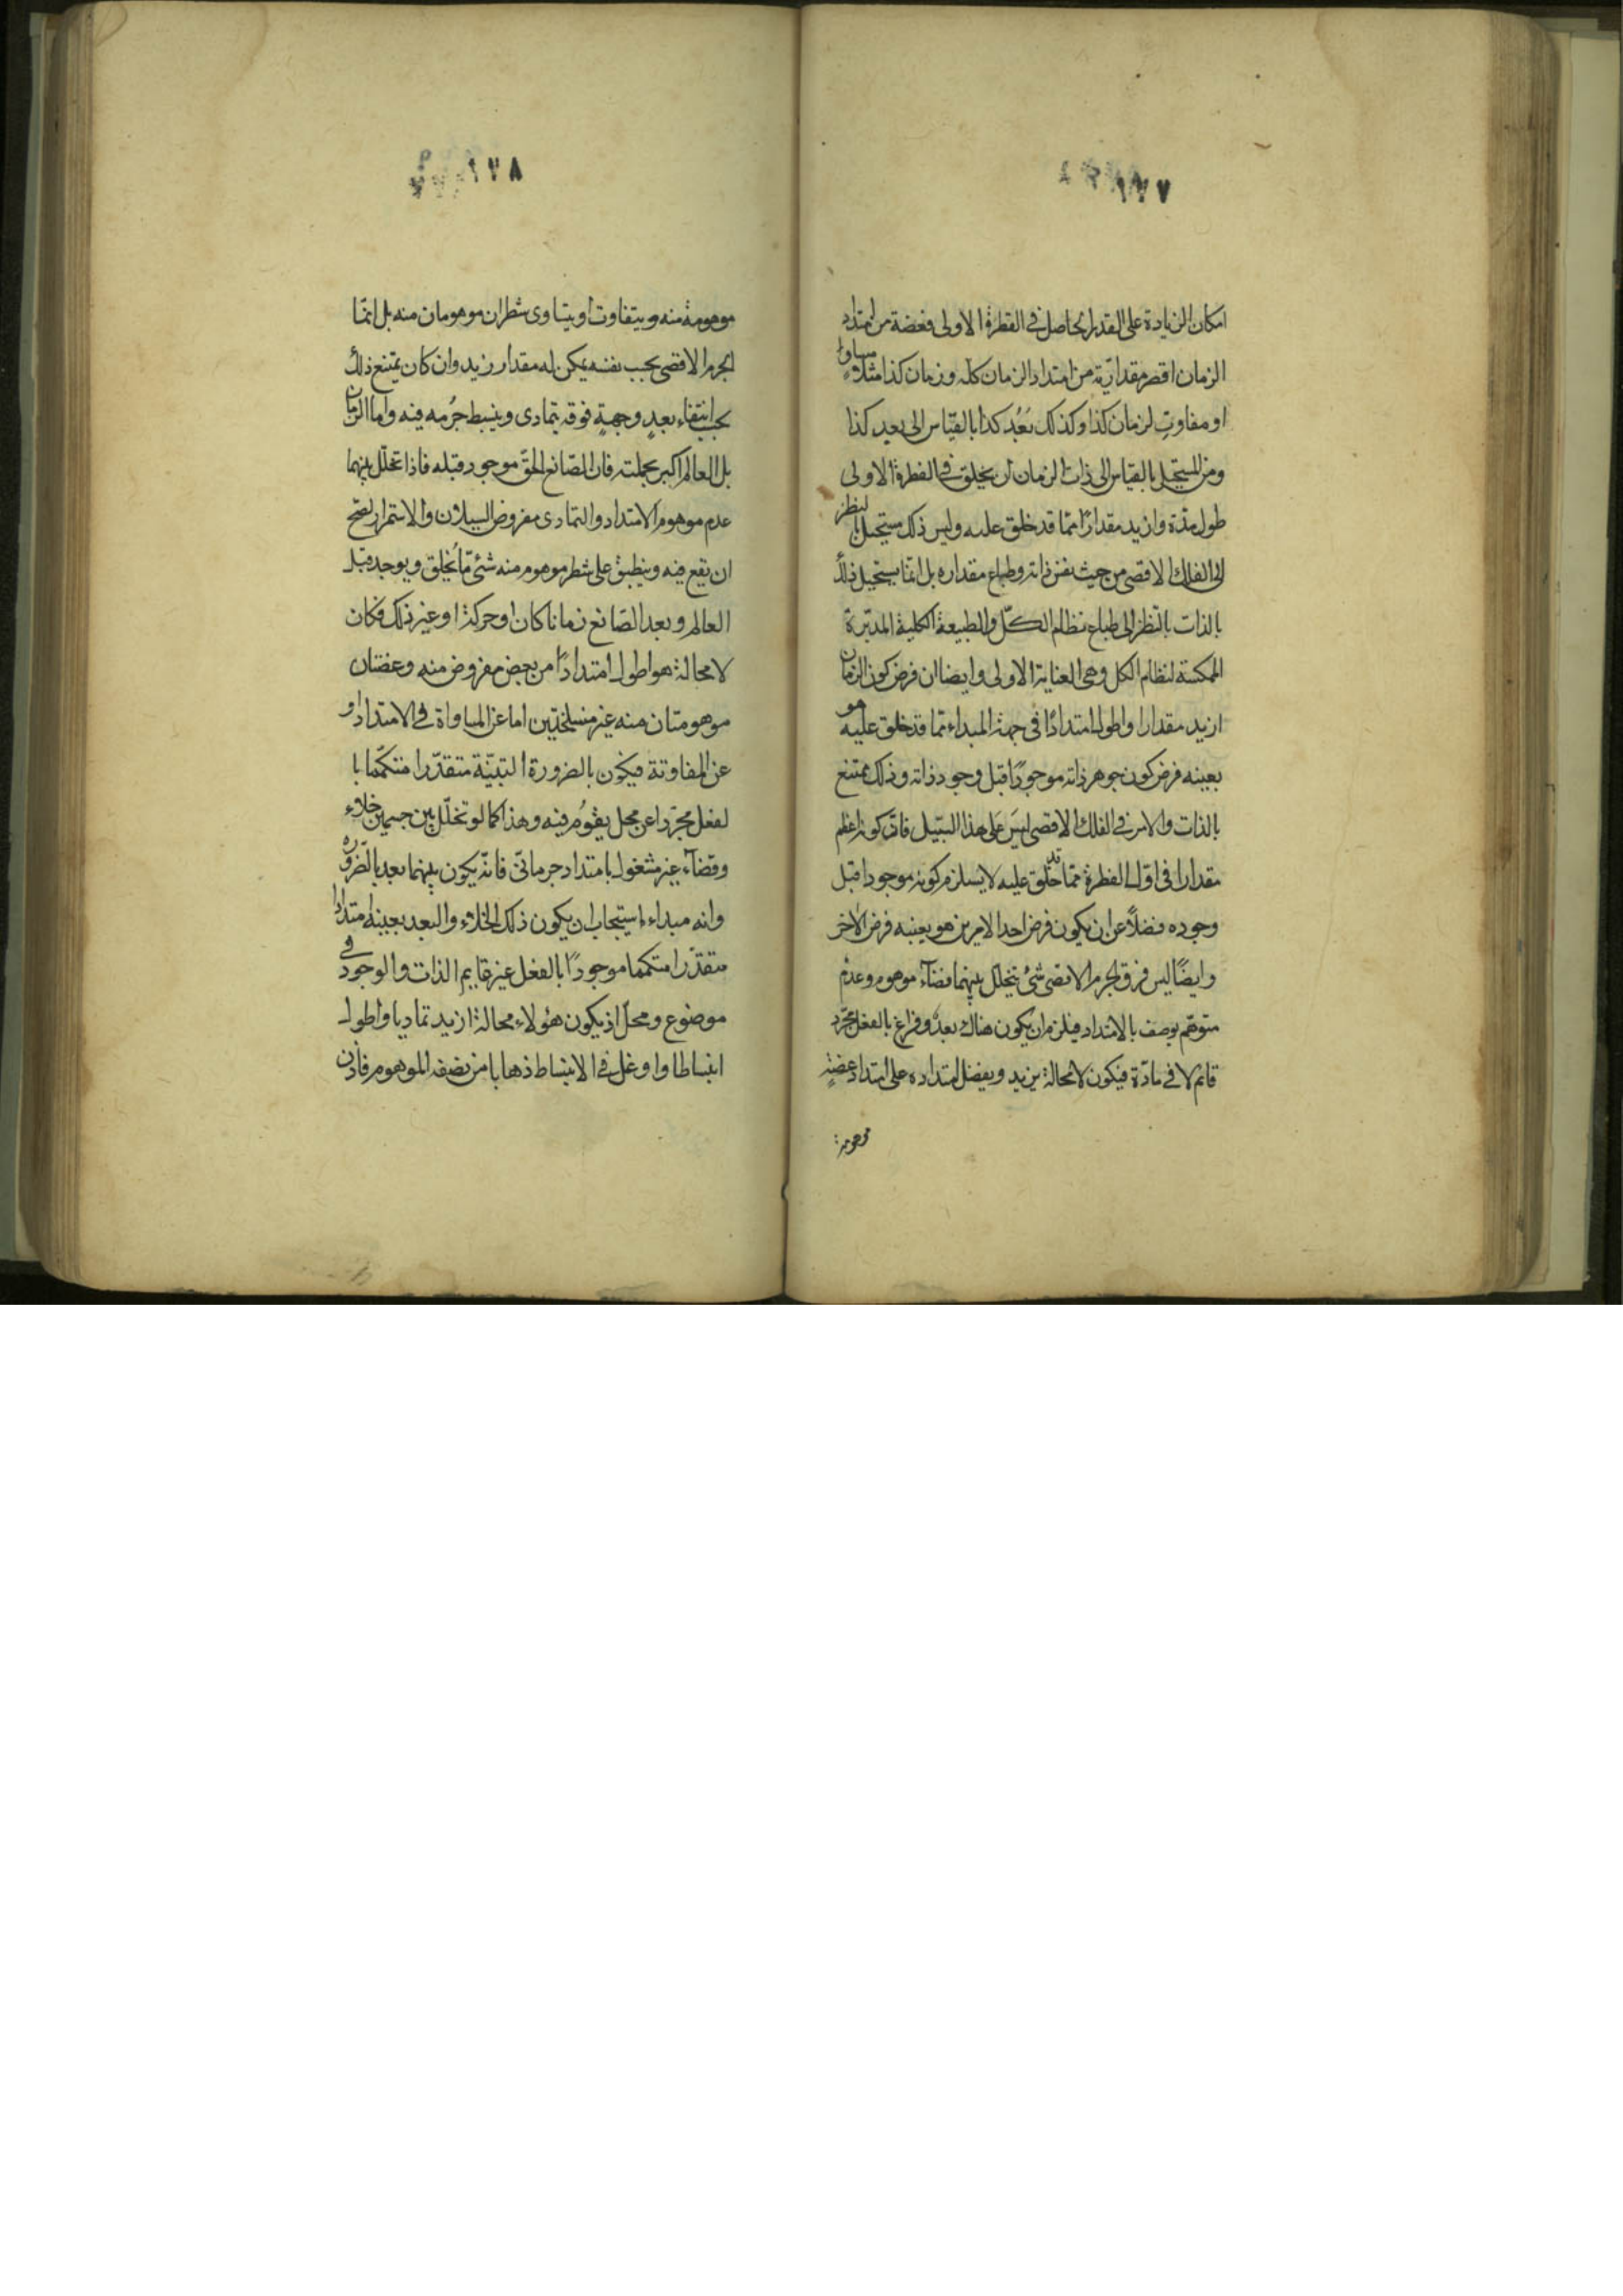 ١٧٧
امكان الزيادة على القدر الحاصل في الفطرة الاولى فعضة من امتداد
الزمان اقصر مقدارية من امتداد الزمان كله وزمان كذا مثلا مساوٍ
او مفاوت لزمان كذا وكذلك بَعُد كذا بالقياس الى بعيد كذا
ومن المستحيل بالقياس الى ذات الزمان ان يخلق في الفطرة الاولى
طول مدّة وازيد مقدارًا ممّا قد خلق عليه وليس ذلك مستحيل بالنظر
الى الفلك الاقصى من حيث نفس ذاته وطباع مقداره بل انّما يستحيل ذلك
بالذات بالنظر الى طباع نظام الكلّ والطبيعة الكلية المدبّرة
الممكسة لنظام الكل وهى العناية الاولى وايضا ان فرض كون الزمان
ازيد مقدارا واطول امتدادًا في جهة المبداء مما قد خلق عليه هو
بعينه فرض كون جوهر ذاته موجودًا قبل وجود ذاته وذلك ممتنع
بالذات والامر في الفلك الاقصى ليس على هذا السّبيل فانّ كونه اعظم
مقدارا في اوّل الفطرة ممّا قد خلق عليه لا يستلزم كونه موجودا قبل
وجوده فضلاً عن ان يكون فرض احد الامرين هو بعينه فرض الآخر
وايضًا ليس فوق الجرم الاقصى شئ يتخلل بينهما فضآء موهوم وعدم
متوهّم يوصف بالامتداد فيلزم ان يكون هناك بعدٌ وفراغ بالفعل مجرّد
قائم لا في مادّة فيكون لا محالة يزيد ويفضل امتداده على امتداد عضةٍ
موهومة
١٧٨
موهومة منه ويتفاوت او يتساوى شطران موهومان منه بل انّما
الجرم الاقصى بحسب نفسه يمكن له مقدار زيد وان كان يمتنع ذلك
بحسب انتفاء بعدٍ وجهةٍ فوقه يتمادى وينبسط جُرمه فيه واما الزمان
بل العالم اكبر بجملته فان الصّانع الحقّ موجود قبله فاذا تخلّل بينهما
عدم موهوم الامتداد والتمادى مفروض السيلان والاستمرار لصحّ
ان يقع فيه وينطبق على شطر موهوم منه شئ مّا يُخلق ويوجد قبل
العالم وبعد الصّانع زمانا كان او حركة او غير ذلك فكان
لا محالة هو اطول امتدادًا من بعض مفروض منه وعضتان
موهومتان منه غير منسلختين اما عن المساواة في الامتداد او
عن المفاوتة فيكون بالضرورة البتيّة متقدّرا متكمّما با
لفعل مجرّدا عن محل يقومُ فيه وهذا كما لو تخلّل بين جسمين خلاء
وفضآء غير مشغول بامتداد جرمانىّ فانّه يكون بينهما بعد بالضّرورة
وانه مبداء استيجاب ان يكون ذلك الخلاء والبعد بعينه امتدادا
متقدّرا متكمما موجودًا بالفعل غير قايم الذات والوجود في
موضوع ومحلّ اذ يكون هؤلاء محالة ازيد تماديا واطول
انبساطا واوغل في الانبساط ذهابا من نصفه الموهوم فاذن